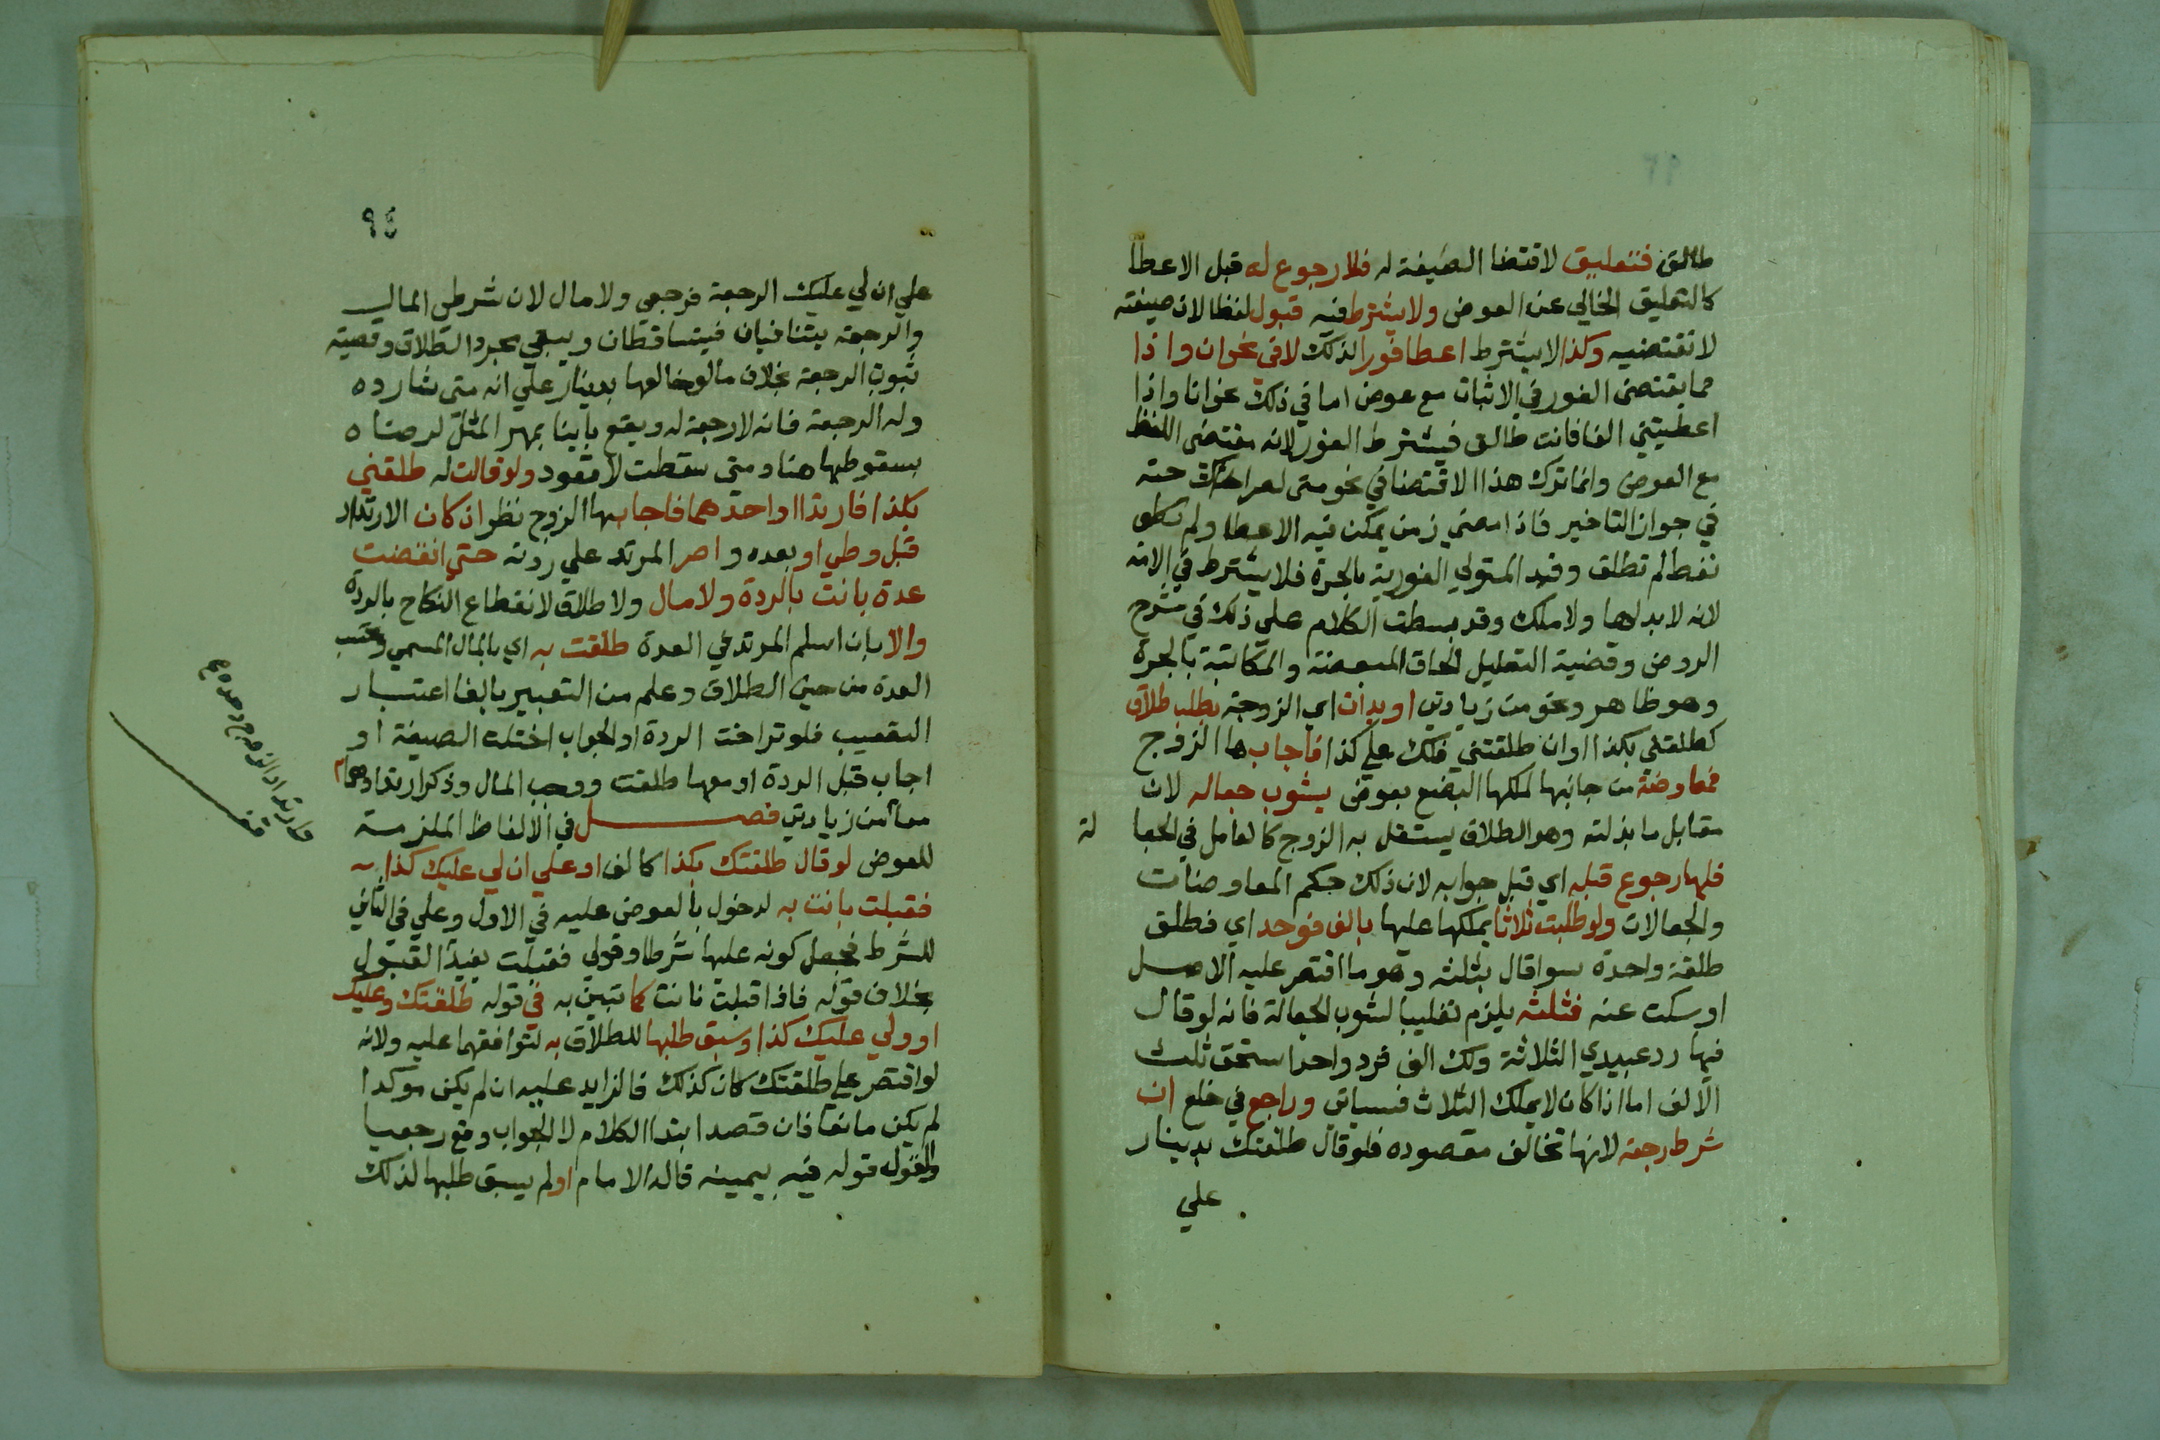 طالق فتعليق لاقتضا الصيغة له فلا رجوع له قبل الاعطا
كالتعليق الخالي عن العوض ولا يشترط فيه قبول لفظا لان صيغته
لا تقتضيه وكذا لا يشترط اعطا فورا لذلك لا في نحو ان واذا
مما يقتضي الفور في الاثبات مع عوض اما في ذلك نحو ان او اذا
اعطيتني الفا فانت طالق فيشترط الفور لانه مقتضى اللفظ
مع العوض وانما ترك هذا الاقتضا في نحو متى لصراحته
في جواز التاخير فاذا مضى زمن يمكن فيه الاعطا ولم تعط
نفط لم تطلق وقيد المتولي الفورية بالحرة فلا يشترط في الامة
لانه لا يد لها ولا ملك وقد بسطت الكلام على ذلك في شرح
الروض وقضية التعليل الحاق المبعضة والمكاتبة بالحرة
وهو ظاهر ونحو من زيادتي او بدات اي الزوجة بطلب طلاق
كطلقني بكذا او ان طلقتني فلك علي كذا فاجابها الزوج
فمعاوضة من جانبها لملكها البضع بعوض يشوب جعاله لان
مقابل ما بذلته وهو الطلاق يستقل به الزوج كالعامل في الجعا لة
فلها رجوع قبله اي قبل جوابه لان ذلك حكم المعاوضات
والجعالات ولو طلبت ثلاثا يملكها عليها بالف فوحد اي فطلق
طلقة واحدة سوا قال بثلثه وهو ما اقتصر عليه الاصل
او سكت عنه فثلثه يلزم تغليبا لشوب الجعالة فانه لو قال
فيها رد عبيدي الثلاثة ولك الف فرد واحدا استحق ثلث
الالف اما اذا كان لا يملك الثلاث فسياتي وراجع في خلع ان
شرط رجعة لانها تخالف مقصوده فلو قال طلقتك بدينار
علي
٩٤
علي ان لي عليك الرجعة فرجعي ولا مال لان شرطي المال
والرجعة يتنافيان فيتساقطان ويبقي مجرد الطلاق وقضيته
ثبوت الرجعة بخلاف ما لو خالعها بدينار علي انه متى شا رده
وله الرجعة فانه لا رجعة له ويقع باينا بمهر المثل لرضاه
بسقوطها هنا ومتى سقطت لا تعود ولو قالت له طلقني
بكذا فارتدا او احدهما فاجابها الزوج نظر ان كان الارتداد
قبل وطي او بعده واصر المرتد علي ردته حتي انقضت
عدة بانت بالردة ولا مال ولا طلاق لانقطاع النكاح بالردة
والا بان اسلم المرتد في العدة طلقت به اي بالمال المسمي وتحسب
العدة من حين الطلاق وعلم من التعبير بالفا اعتبار
التعقيب فلو تراخت الردة او الجواب اختلت الصيغة او
اجاب قبل الردة او معها طلقت ووجب المال وذكر ارتدادهما
معا من زيادتي فصل في الالفاظ الملزمة
للعوض لو قال طلقتك بكذا كالف او علي ان لي عليك كذا
فقبلت بانت به لدخول با العوض عليه في الاول وعلي في الثاني
للشرط فجعل كونه عليها شرطا وقولي فقبلت يفيد القبول
بخلاف قوله فاذا قبلت بانت كما تبين به في قوله طلقتك وعليك
او ولي عليك كذا وسبق طلبها للطلاق به لتوافقهما عليه ولانه
لو اقتصر علي طلقتك كان كذلك فالزايد عليه ان لم يكن موكدا
لم يكن مانعا فان قصد ابتدا الكلام لا الجواب وقع رجعيا
والقول قوله فيه بيمينه قاله الامام او لم يسبق طلبها لذلك